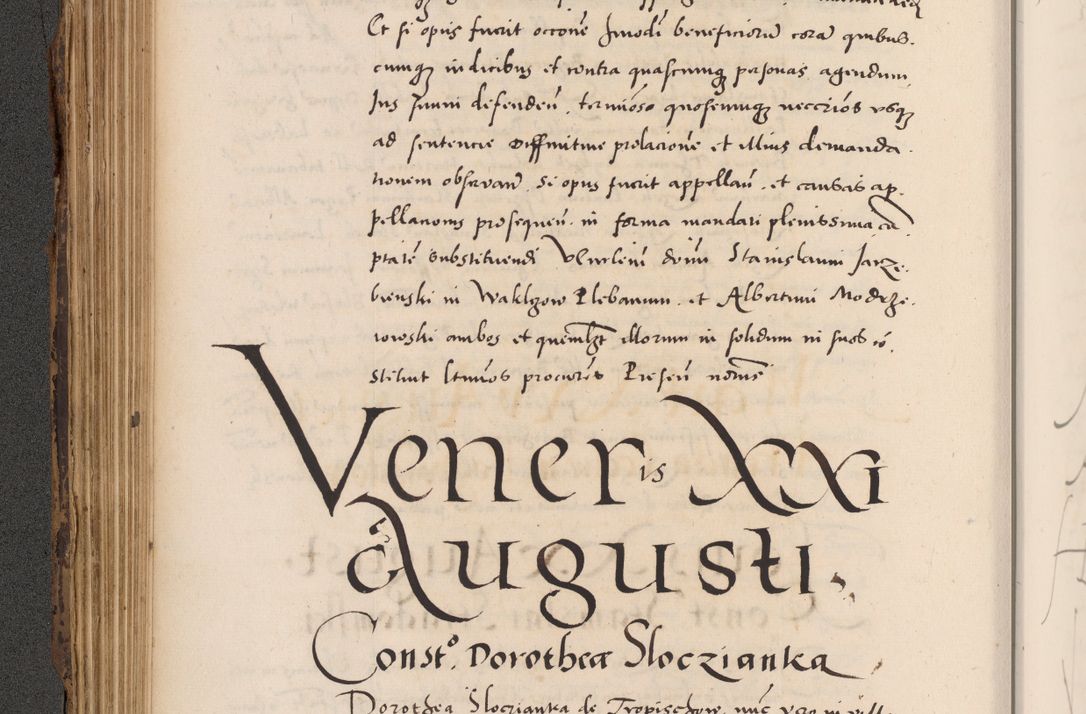 Et si opus fuerit occone Imodi beneficiorum cora quibus.
cumq iudicibus et contra quascumq personas agendum
Ius suum defenden. terminos quoscumq neccrios vsq
ad sentencie diffinitiue prolacione et illius demanda.
tionem obseruan. Si opus fuerit appellan. et causas ap.
pellationis prosequen. in forma mandati plenissima cu
ptate substituendi Vlwlem dnm Stanislaum Jarze.
bienski in Waklzow Plebanum. et Albertum Modrze.
wowski ambos et quemlzt illorum in solidum in suos co
stituit ltimos procures Presen nomie
Veneris XXI
Augusti.
Consto. Dorothea Sloczianka
Dorothea Sloczianka de Tropischow, nuc vero in vill